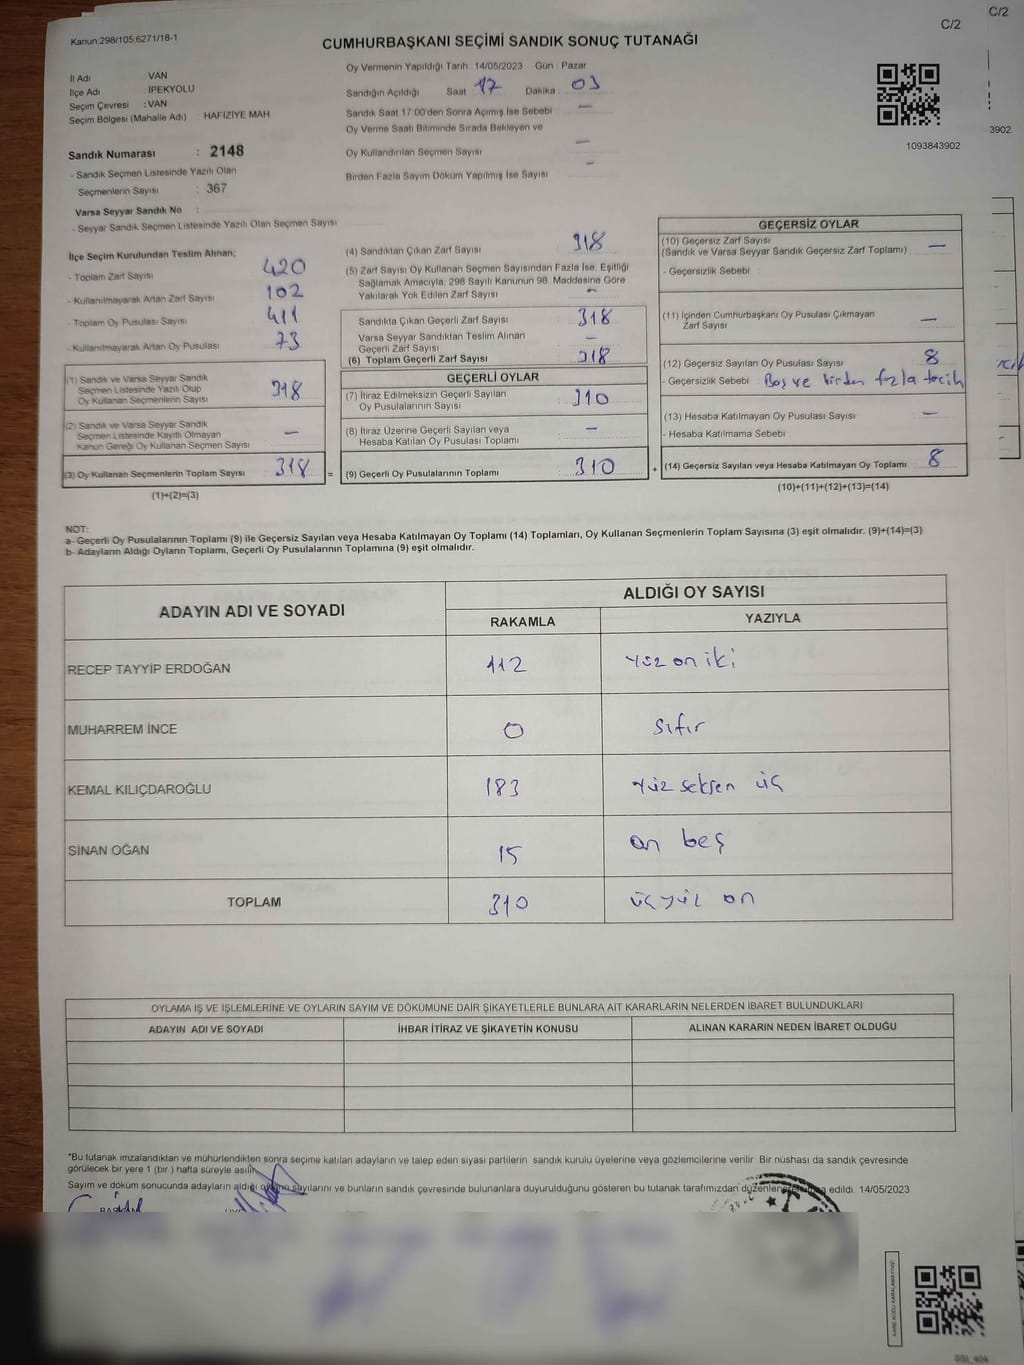 C/2
C/2
Kanun:298/105;6271/18-1
CUMHURBAŞKANI SEÇİMİ SANDIK SONUÇ TUTANAĞI
İl Adı VAN
İlçe Adı İPEKYOLU
Seçim Çevresi : VAN
Seçim Bölgesi (Mahalle Adı) : HAFIZIYE MAH
Oy Vermenin Yapıldığı Tarih 14/05/2023 Gün Pazar
Sandığın Açıldığı Saat 17 Dakika 03
Sandık Saat 17:00'den Sonra Açımış İse Sebebi —
Oy Verme Saati Bitiminde Sırada Bekleyen ve
Oy Kullandırılan Seçmen Sayısı —
Birden Fazla Sayım Döküm Yapılmış İse Sayısı —
3902
1093843902
Sandık Numarası : 2148
- Sandık Seçmen Listesinde Yazılı Olan
Seçmenlerin Sayısı : 367
Varsa Seyyar Sandık No :
- Seyyar Sandık Seçmen Listesinde Yazılı Olan Seçmen Sayısı
İlçe Seçim Kurulundan Teslim Alınan;
- Toplam Zarf Sayısı 420
- Kullanılmayarak Artan Zarf Sayısı 102
- Toplam Oy Pusulası Sayısı 411
- Kullanılmayarak Artan Oy Pusulası 73
(1) Sandık ve Varsa Seyyar Sandık
Seçmen Listesinde Yazılı Olup
Oy Kullanan Seçmenlerin Sayısı 318
(2) Sandık ve Varsa Seyyar Sandık
Seçmen Listesinde Kayıtlı Olmayan
Kanun Gereği Oy Kullanan Seçmen Sayısı —
(3) Oy Kullanan Seçmenlerin Toplam Sayısı 318 =
(1)+(2)=(3)
(4) Sandıktan Çıkan Zarf Sayısı 318
(5) Zarf Sayısı Oy Kullanan Seçmen Sayısından Fazla İse, Eşitliği
Sağlamak Amacıyla; 298 Sayılı Kanunun 98. Maddesine Göre
Yakılarak Yok Edilen Zarf Sayısı —
Sandıkta Çıkan Geçerli Zarf Sayısı 318
Varsa Seyyar Sandıktan Teslim Alınan
Geçerli Zarf Sayısı —
(6) Toplam Geçerli Zarf Sayısı 318
GEÇERLİ OYLAR
(7) İtiraz Edilmeksizin Geçerli Sayılan
Oy Pusulalarının Sayısı 310
(8) İtiraz Üzerine Geçerli Sayılan veya
Hesaba Katılan Oy Pusulası Toplamı —
(9) Geçerli Oy Pusulalarının Toplamı 310 +
GEÇERSİZ OYLAR
(10) Geçersiz Zarf Sayısı
(Sandık ve Varsa Seyyar Sandık Geçersiz Zarf Toplamı) —
- Geçersizlik Sebebi :
(11) İçinden Cumhurbaşkanı Oy Pusulası Çıkmayan
Zarf Sayısı —
(12) Geçersiz Sayılan Oy Pusulası Sayısı 8
- Geçersizlik Sebebi : Boş ve birden fazla tercih
(13) Hesaba Katılmayan Oy Pusulası Sayısı —
- Hesaba Katılmama Sebebi
(14) Geçersiz Sayılan veya Hesaba Katılmayan Oy Toplamı 8
(10)+(11)+(12)+(13)=(14)
NOT:
a- Geçerli Oy Pusulalarının Toplamı (9) ile Geçersiz Sayılan veya Hesaba Katılmayan Oy Toplamı (14) Toplamları, Oy Kullanan Seçmenlerin Toplam Sayısına (3) eşit olmalıdır. (9)+(14)=(3)
b- Adayların Aldığı Oyların Toplamı, Geçerli Oy Pusulalarının Toplamına (9) eşit olmalıdır.
ADAYIN ADI VE SOYADI
ALDIĞI OY SAYISI
RAKAMLA YAZIYLA
RECEP TAYYİP ERDOĞAN 112 yüz on iki
MUHARREM İNCE 0 sıfır
KEMAL KILIÇDAROĞLU 183 yüz seksen üç
SİNAN OĞAN 15 on beş
TOPLAM 310 üçyüz on
OYLAMA İŞ VE İŞLEMLERİNE VE OYLARIN SAYIM VE DÖKÜMÜNE DAİR ŞİKAYETLERLE BUNLARA AİT KARARLARIN NELERDEN İBARET BULUNDUKLARI
ADAYIN ADI VE SOYADI İHBAR İTİRAZ VE ŞİKAYETİN KONUSU ALINAN KARARIN NEDEN İBARET OLDUĞU
*Bu tutanak imzalandıktan ve mühürlendikten sonra seçime katılan adayların ve talep eden siyasi partilerin sandık kurulu üyelerine veya gözlemcilerine verilir Bir nüshası da sandık çevresinde
görülecek bir yere 1 (bir ) hafta süreyle asılır.
Sayım ve döküm sonucunda adayların aldığı oyların sayılarını ve bunların sandık çevresinde bulunanlara duyurulduğunu gösteren bu tutanak tarafımızdan düzenlenerek imza edildi. 14/05/2023